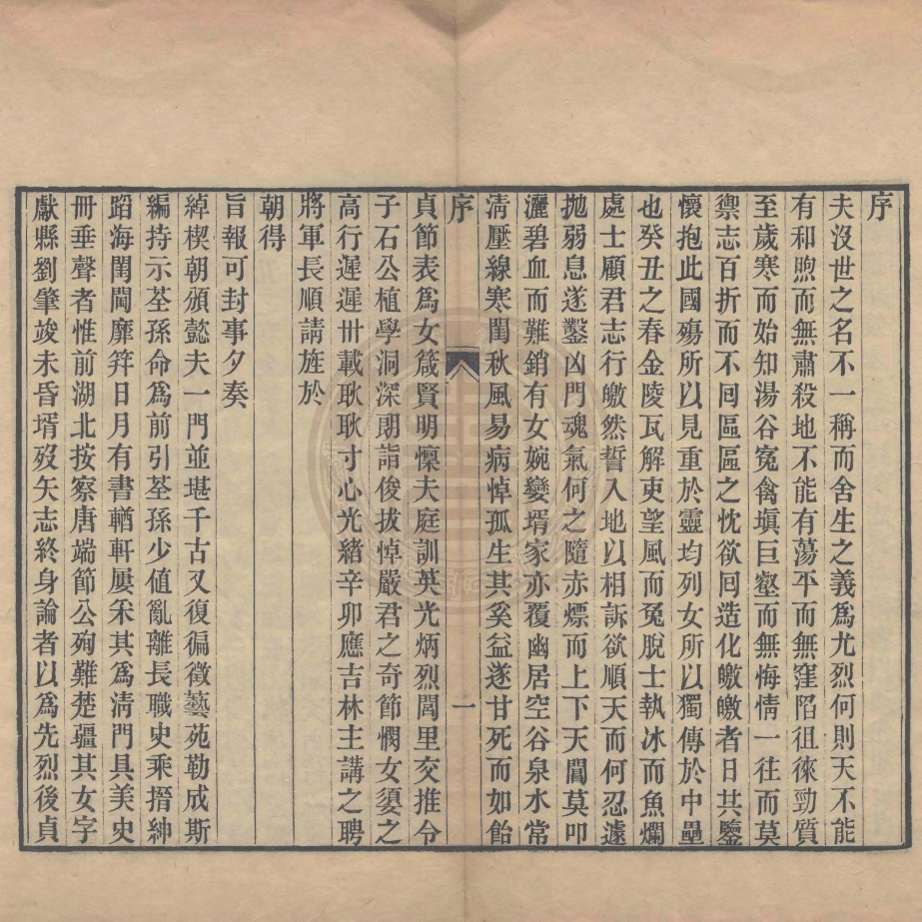 序
夫沒世之名不一稱而舍生之義爲尤烈何則天不能
有和煦而無肅殺地不能有蕩平而無窪陷徂徠勁質
至歲寒而始知湯谷寃禽塡巨壑而無悔情一往而莫
禦志百折而不囘區區之忱欲囘造化皦皦者日共鑒
懷抱此國殤所以見重於靈均列女所以獨傳於中壘
也癸丑之春金陵瓦解吏望風而兔脫士執冰而魚爛
處士顧君志行皦然誓入地以相訴欲順天而何忍遽
拋弱息遂鑿凶門魂氣何之隨赤熛而上下天閽莫叩
灑碧血而難銷有女婉孌壻家亦覆幽居空谷泉水常
淸壓線寒閨秋風易病悼孤生其奚益遂甘死而如飴
序
一
貞節表爲女箴賢明懍夫庭訓英光炳烈閭里交推令
子石公植學洞深朗詣俊拔悼嚴君之奇節憫女嬃之
高行遲遲卅載耿耿寸心光緒辛卯應吉林主講之聘
將軍長順請旌於
朝得
旨報可封事夕奏
綽楔朝頒懿夫一門並堪千古又復徧徵藝苑勒成斯
編持示荃孫命爲前引荃孫少値亂離長職史乘搢紳
蹈海閨闈靡笄日月有書輶軒屢采其爲淸門具美史
冊垂聲者惟前湖北按察唐端節公殉難楚疆其女字
獻縣劉肇竣未昏壻歿矢志終身論者以爲先烈後貞